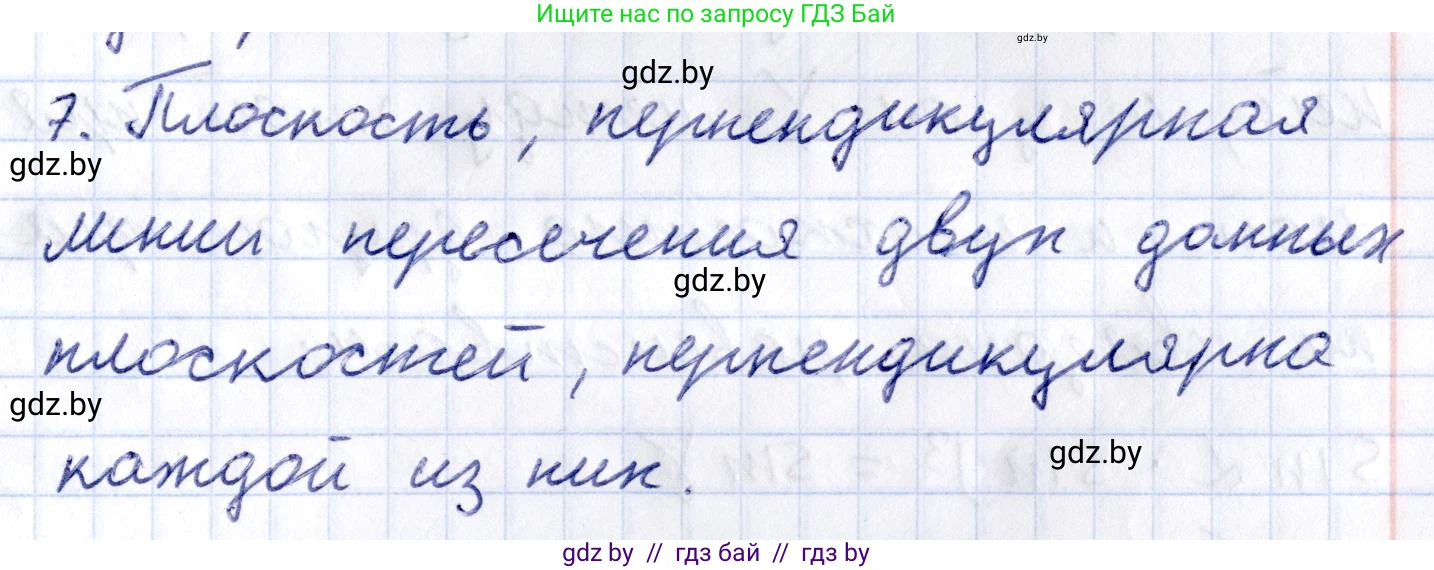 Ищите нас по запросу ГДЗ Бай
gdz.by
gdz.by
7. Плоскость, перпендикулярная
gdz.by
линии пересечения двух данных
gdz.by
плоскостей, перпендикулярна
gdz.by
каждой из них.
gdz.by
gdz by // гдз бай // гдз by